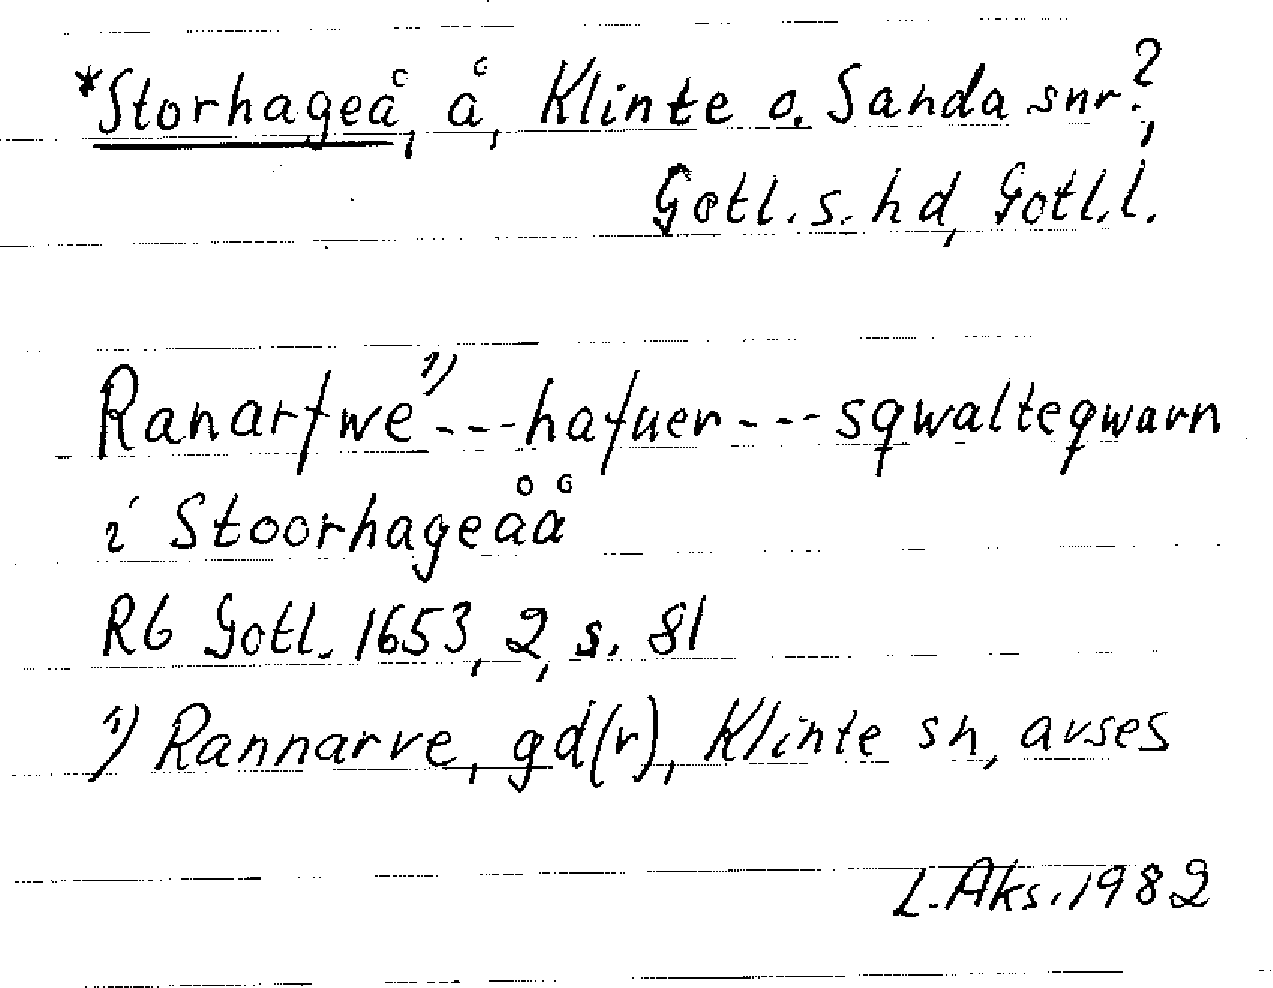 *Storhageå, å, Klinte o. Sanda snr?,
Gotl. s. hd, Gotl. l.
Ranarfwe¹⁾---hafuer---sqwalteqwarn
i Stoorhageåå
Rb Gotl. 1653, 2, s. 81
¹⁾ Rannarve, gd(r), Klinte sn, avses
L. Aks. 1982